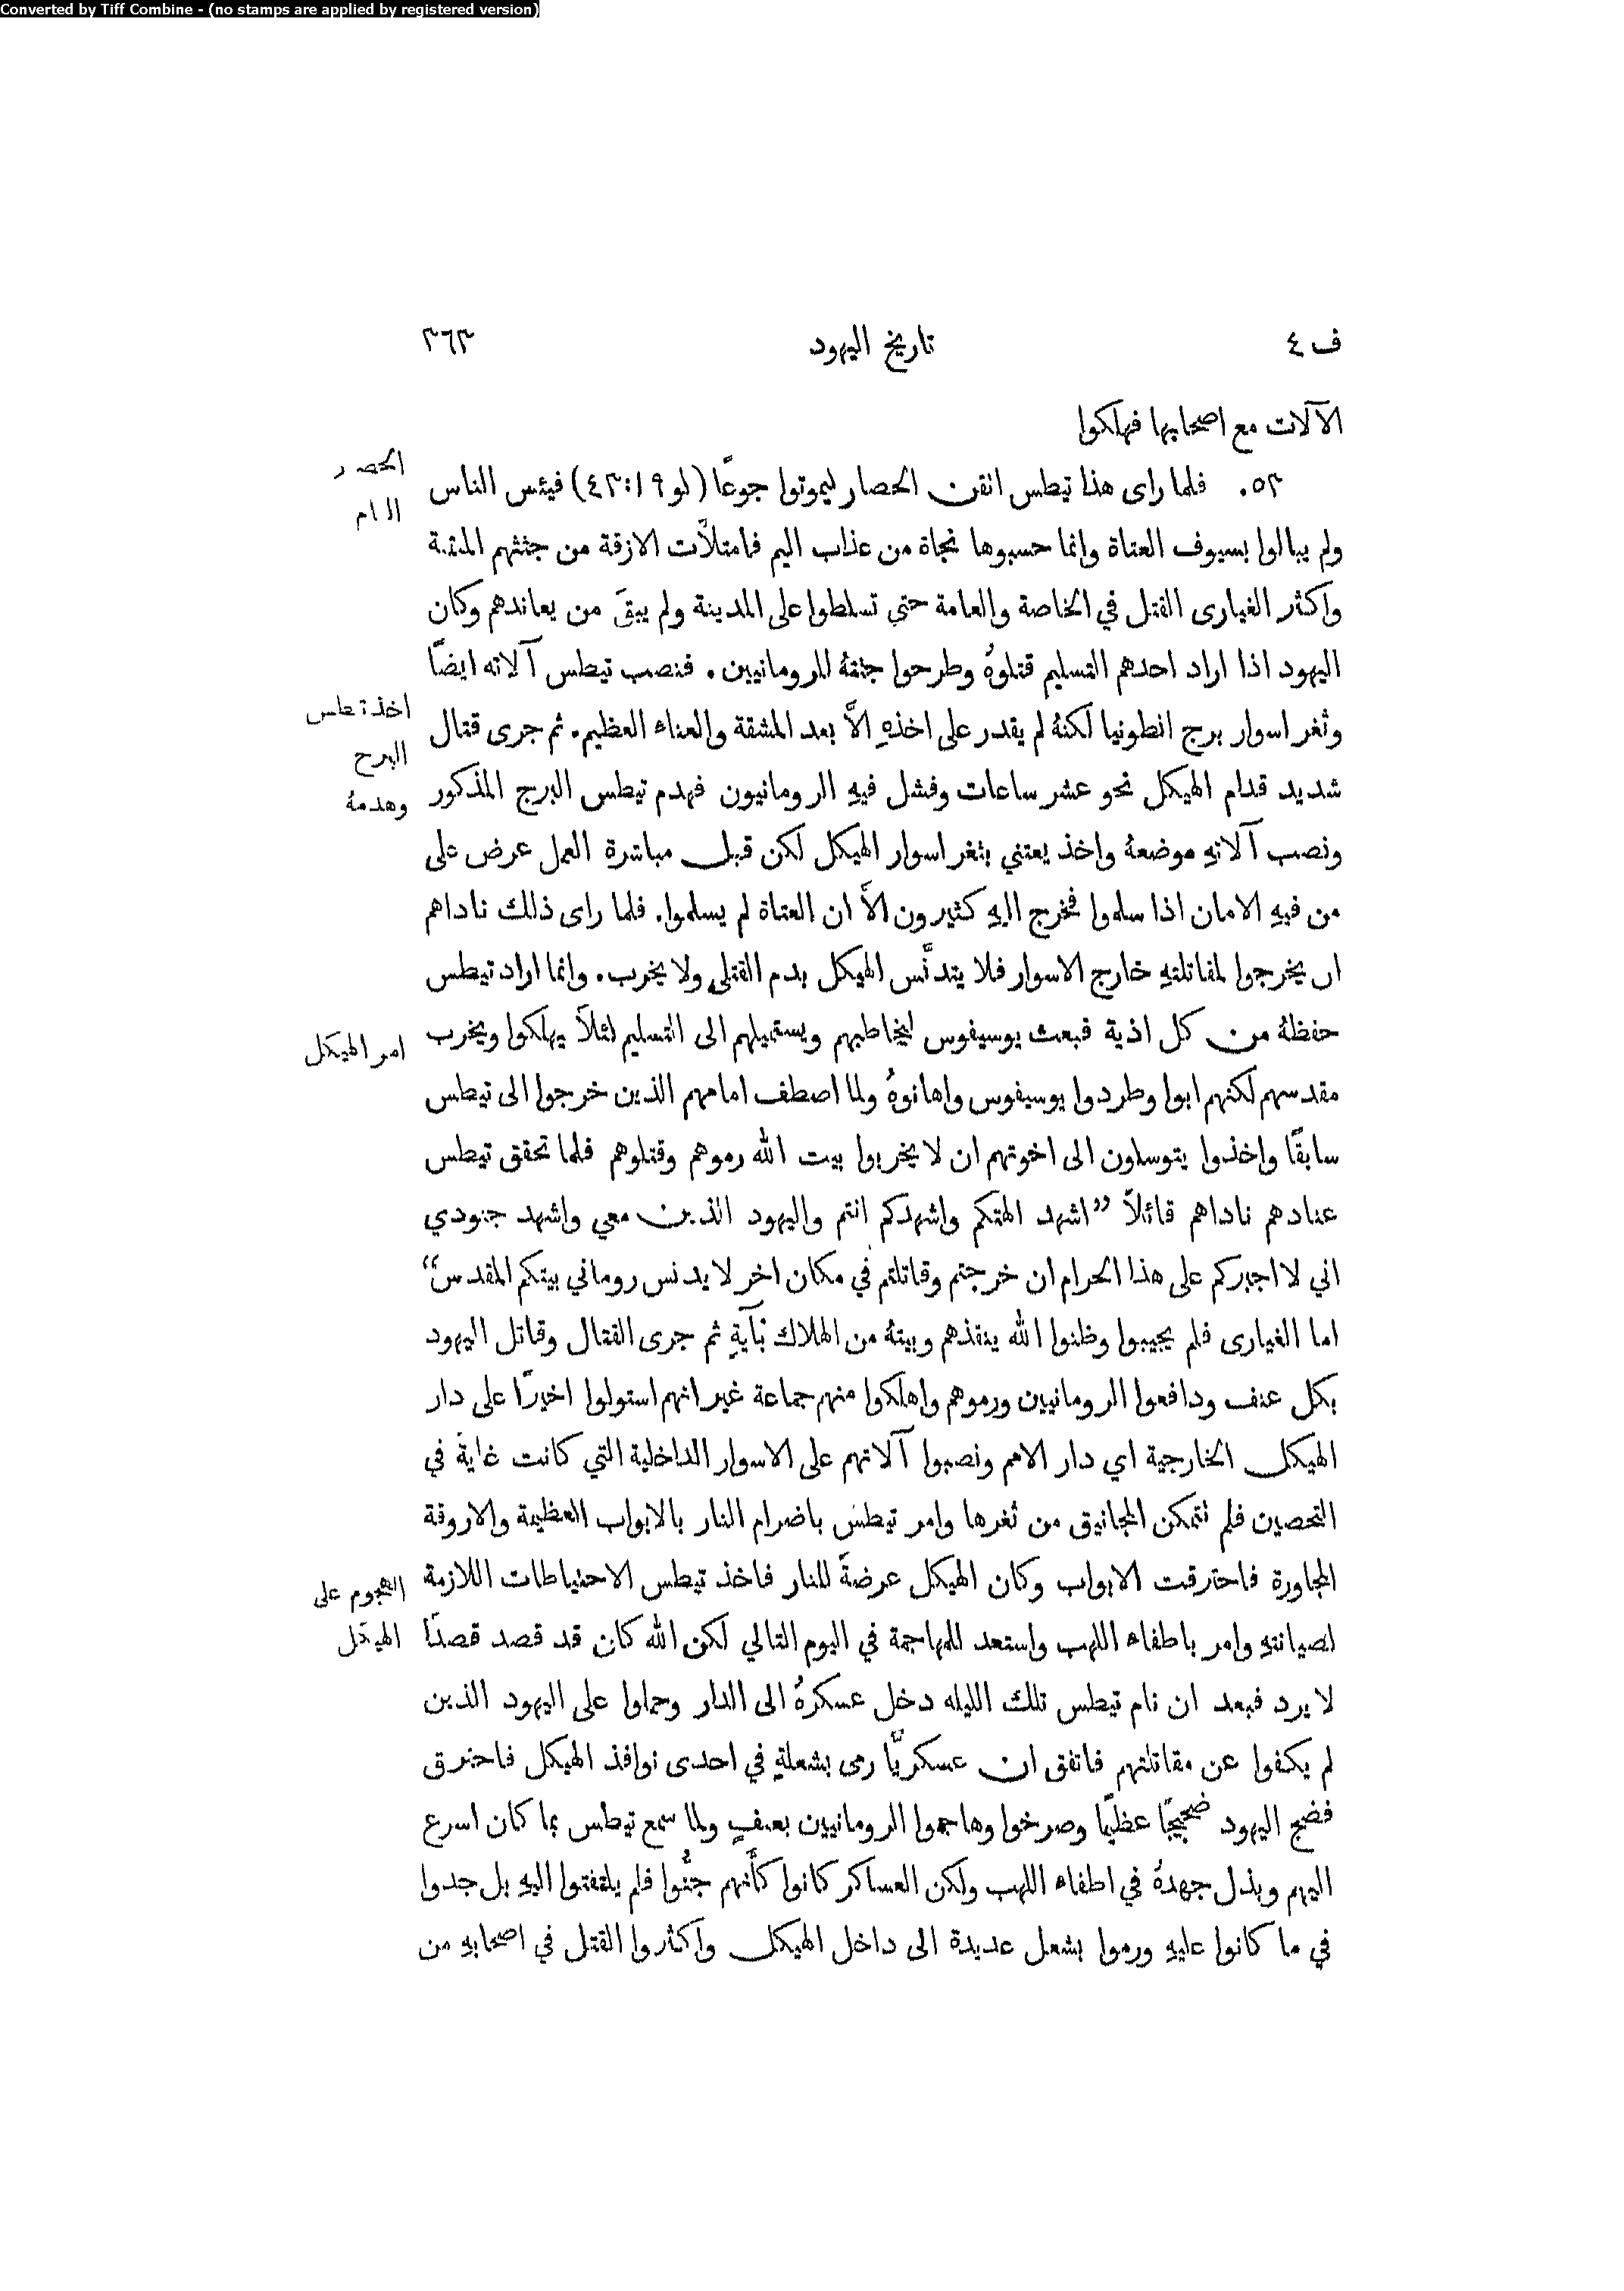 Converted by Tiff Combine - (no stamps are applied by registered version)
ف ٤ تاريخ اليهود ٣٦٣
الآلات مع اصحابها فهلكوا
٥٢. فلما راى هذا تيطس اتقن الحصار ليموتوا جوعًا (لو ١٩:٤٣) فيئس الناس
الحصر
ولم يبالوا بسيوف العتاة وانما حسبوها نجاة من عذاب اليم فامتلأت الازقة من جثثهم المنتنة
واكثر الغيارى القتل في الخاصة والعامة حتى تسلطوا على المدينة ولم يبقَ من يعاندهم وكان
اليهود اذا اراد احدهم التسليم قتلوهُ وطرحوا جثتهُ للرومانيين. فنصب تيطس آلاته ايضًا
اخذ تيطس
البرج
وهدمهُ
وثغر اسوار برج انطونيا لكنهُ لم يقدر على اخذهِ الاَّ بعد المشقة والعناء العظيم. ثم جرى قتال
شديد قدام الهيكل نحو عشر ساعات وفشل فيهِ الرومانيون فهدم تيطس البرج المذكور
ونصب آلاتهِ موضعهُ واخذ يعتني بثغر اسوار الهيكل لكن قبل مباشرة العمل عرض على
من فيهِ الامان اذا سلموا فخرج اليهِ كثيرون الاَّ ان العتاة لم يسلموا. فلما راى ذلك ناداهم
ان يخرجوا لمقاتلتهِ خارج الاسوار فلا يتدنَّس الهيكل بدم القتلى ولا يخرب. وانما اراد تيطس
حفظهُ من كل اذية فبعث يوسيفوس ليخاطبهم ويستميلهم الى التسليم لئلاَّ يهلكوا ويخرب
امر الهيكل
مقدسهم لكنهم ابوا وطردوا يوسيفوس واهانوهُ ولما اصطف امامهم الذين خرجوا الى تيطس
سابقًا واخذوا يتوسلون الى اخوتهم ان لا يخربوا بيت الله رموهم وقتلوهم فلما تحقق تيطس
عنادهم ناداهم قائلاً ”اشهد الهتكم واشهدكم انتم واليهود الذين معي واشهد جنودي
اني لا اجبركم على هذا الحرام ان خرجتم وقاتلتم في مكان اخر لا يدنس روماني بيتكم المقدس“
اما الغيارى فلم يجيبوا وظنوا الله ينقذهم وبيتهُ من الهلاك بآيةٍ ثم جرى القتال وقاتل اليهود
بكل عنف ودافعوا الرومانيين ورموهم واهلكوا منهم جماعة غير انهم استولوا اخيرًا على دار
الهيكل الخارجية اي دار الامم ونصبوا آلاتهم على الاسوار الداخلية التي كانت غايةً في
التحصين فلم تتمكن المجانيق من ثغرها وامر تيطس باضرام النار بالابواب العظيمة والاروقة
المجاورة فاحترقت الابواب وكان الهيكل عرضةً للنار فاخذ تيطس الاحتياطات اللازمة
الهجوم على
الهيكل
لصيانتهِ وامر باطفاء اللهب واستعد للمهاجمة في اليوم التالي لكن الله كان قد قصد قصدًا
لا يرد فبعد ان نام تيطس تلك الليله دخل عسكرهُ الى الدار وحملوا على اليهود الذين
لم يكفوا عن مقاتلتهم فاتفق ان عسكريًّا رمى بشعلةٍ في احدى نوافذ الهيكل فاحترق
فضج اليهود ضجيجًا عظيمًا وصرخوا وهاجموا الرومانيين بعنفٍ ولما سمع تيطس بما كان اسرع
اليهم وبذل جهدهُ في اطفاء اللهب ولكن العساكر كانوا كأنهم جنُّوا فلم يلتفتوا اليهِ بل جدوا
في ما كانوا عليهِ ورموا بشعل عديدة الى داخل الهيكل واكثروا القتل في اصحابهِ من